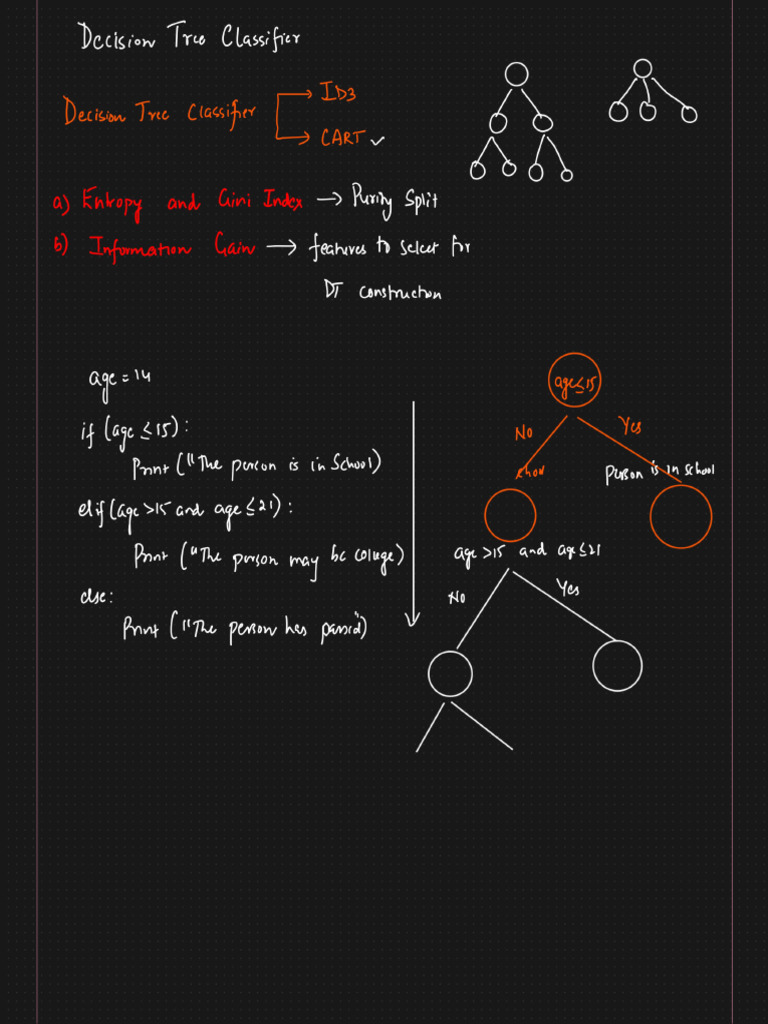 Decision Tree Classifier
Decision Tree Classifier
ID3
CART
a) Entropy and Gini Index → Purity Split
b) Information Gain → features to select for
DT construction
age = 14
if (age ≤ 15):
Print ("The person is in School)
elif (age >15 and age ≤ 21):
Print ("The person may be college)
else:
Print ("The person has passed")
age ≤ 15
No
Yes
person is in school
age >15 and age ≤ 21
No
Yes